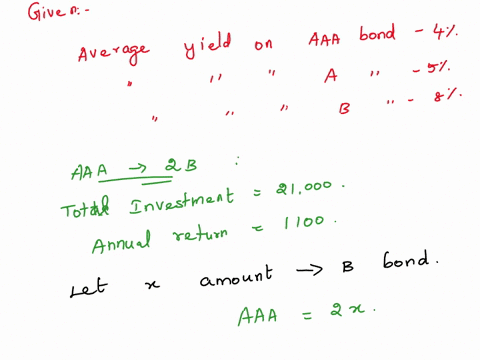 Given:-
Average yield on AAA bond - 4%.
" " " A " - 5%.
" " " B " - 8%.
AAA → 2B :
Total Investment = 21,000.
Annual return = 1100.
Let x amount → B bond.
AAA = 2x.